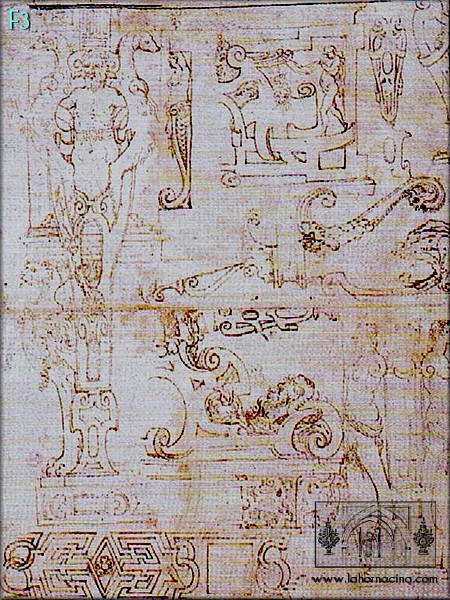 F3
www.lahornacina.com